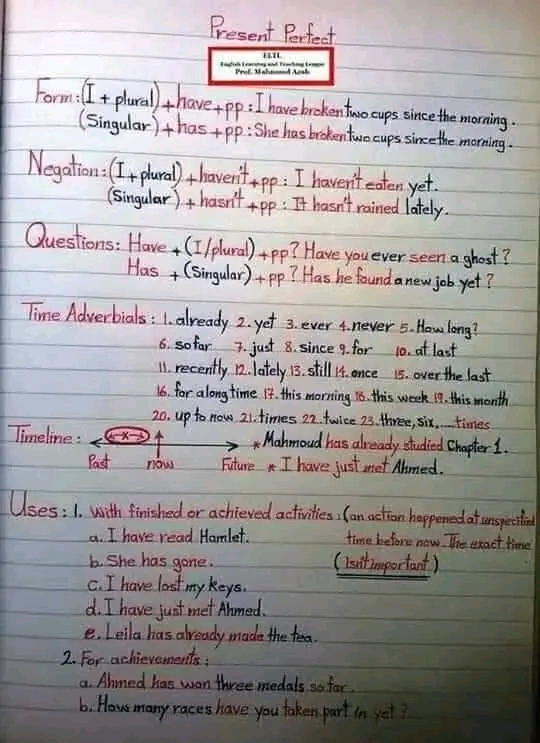 Present Perfect
ELTL
English Learning and Teaching League
Prof. Mahmoud Arab
Form: (I + plural) + have + pp : I have broken two cups since the morning.
(Singular) + has + pp : She has broken two cups since the morning.
Negation: (I + plural) + haven't + pp : I haven't eaten yet.
(Singular) + hasn't + pp : It hasn't rained lately.
Questions: Have + (I/plural) + pp? Have you ever seen a ghost?
Has + (Singular) + pp? Has he found a new job yet?
Time Adverbials : 1. already 2. yet 3. ever 4. never 5. How long?
6. so far 7. just 8. since 9. for 10. at last
11. recently 12. lately 13. still 14. once 15. over the last
16. for along time 17. this morning 18. this week 19. this month
20. up to now 21. times 22. twice 23. three, six, ... times
Timeline : x * Mahmoud has already studied Chapter 1.
Past now Future * I have just met Ahmed.
Uses: 1. with finished or achieved activities : (an action happened at unspecified
a. I have read Hamlet. time before now. The exact time
b. She has gone. (Isn't important)
c. I have lost my keys.
d. I have just met Ahmed.
e. Leila has already made the tea.
2. For achievements :
a. Ahmed has won three medals so far.
b. How many races have you taken part in yet?